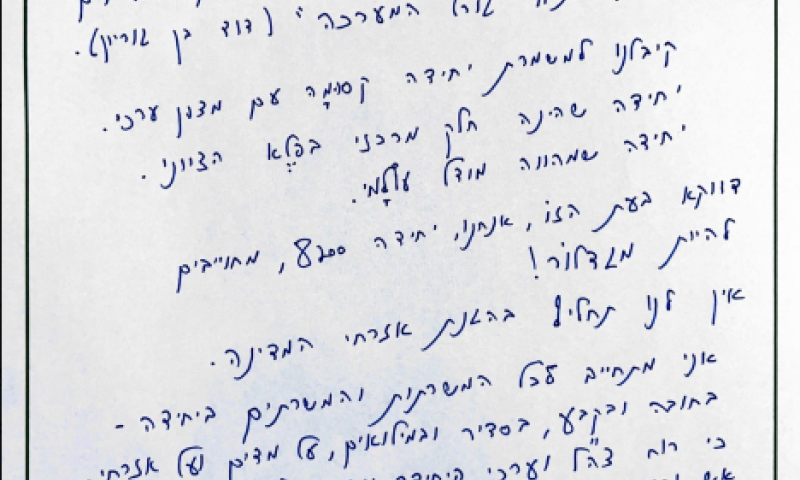 גורל המערכה" (דוד בן גוריון).
קיבלנו למשמרת יחידה קסומה עם מצפן ערכי.
יחידה שהינה חלק מרכזי בפלא הציוני.
יחידה שמהווה מודל עולמי.
דווקא בעת הזו, אנחנו, יחידה 8200, מחוייבים
להיות מגדלור!
אין לנו תחליף בהגנת אזרחי המדינה.
אני מתחייב לכל המשרתות והמשרתים ביחידה -
בחובה ובקבע, בסדיר ובמילואים, על מדים ועל אזרחי
כי רוח צה"ל וערכי היחידה